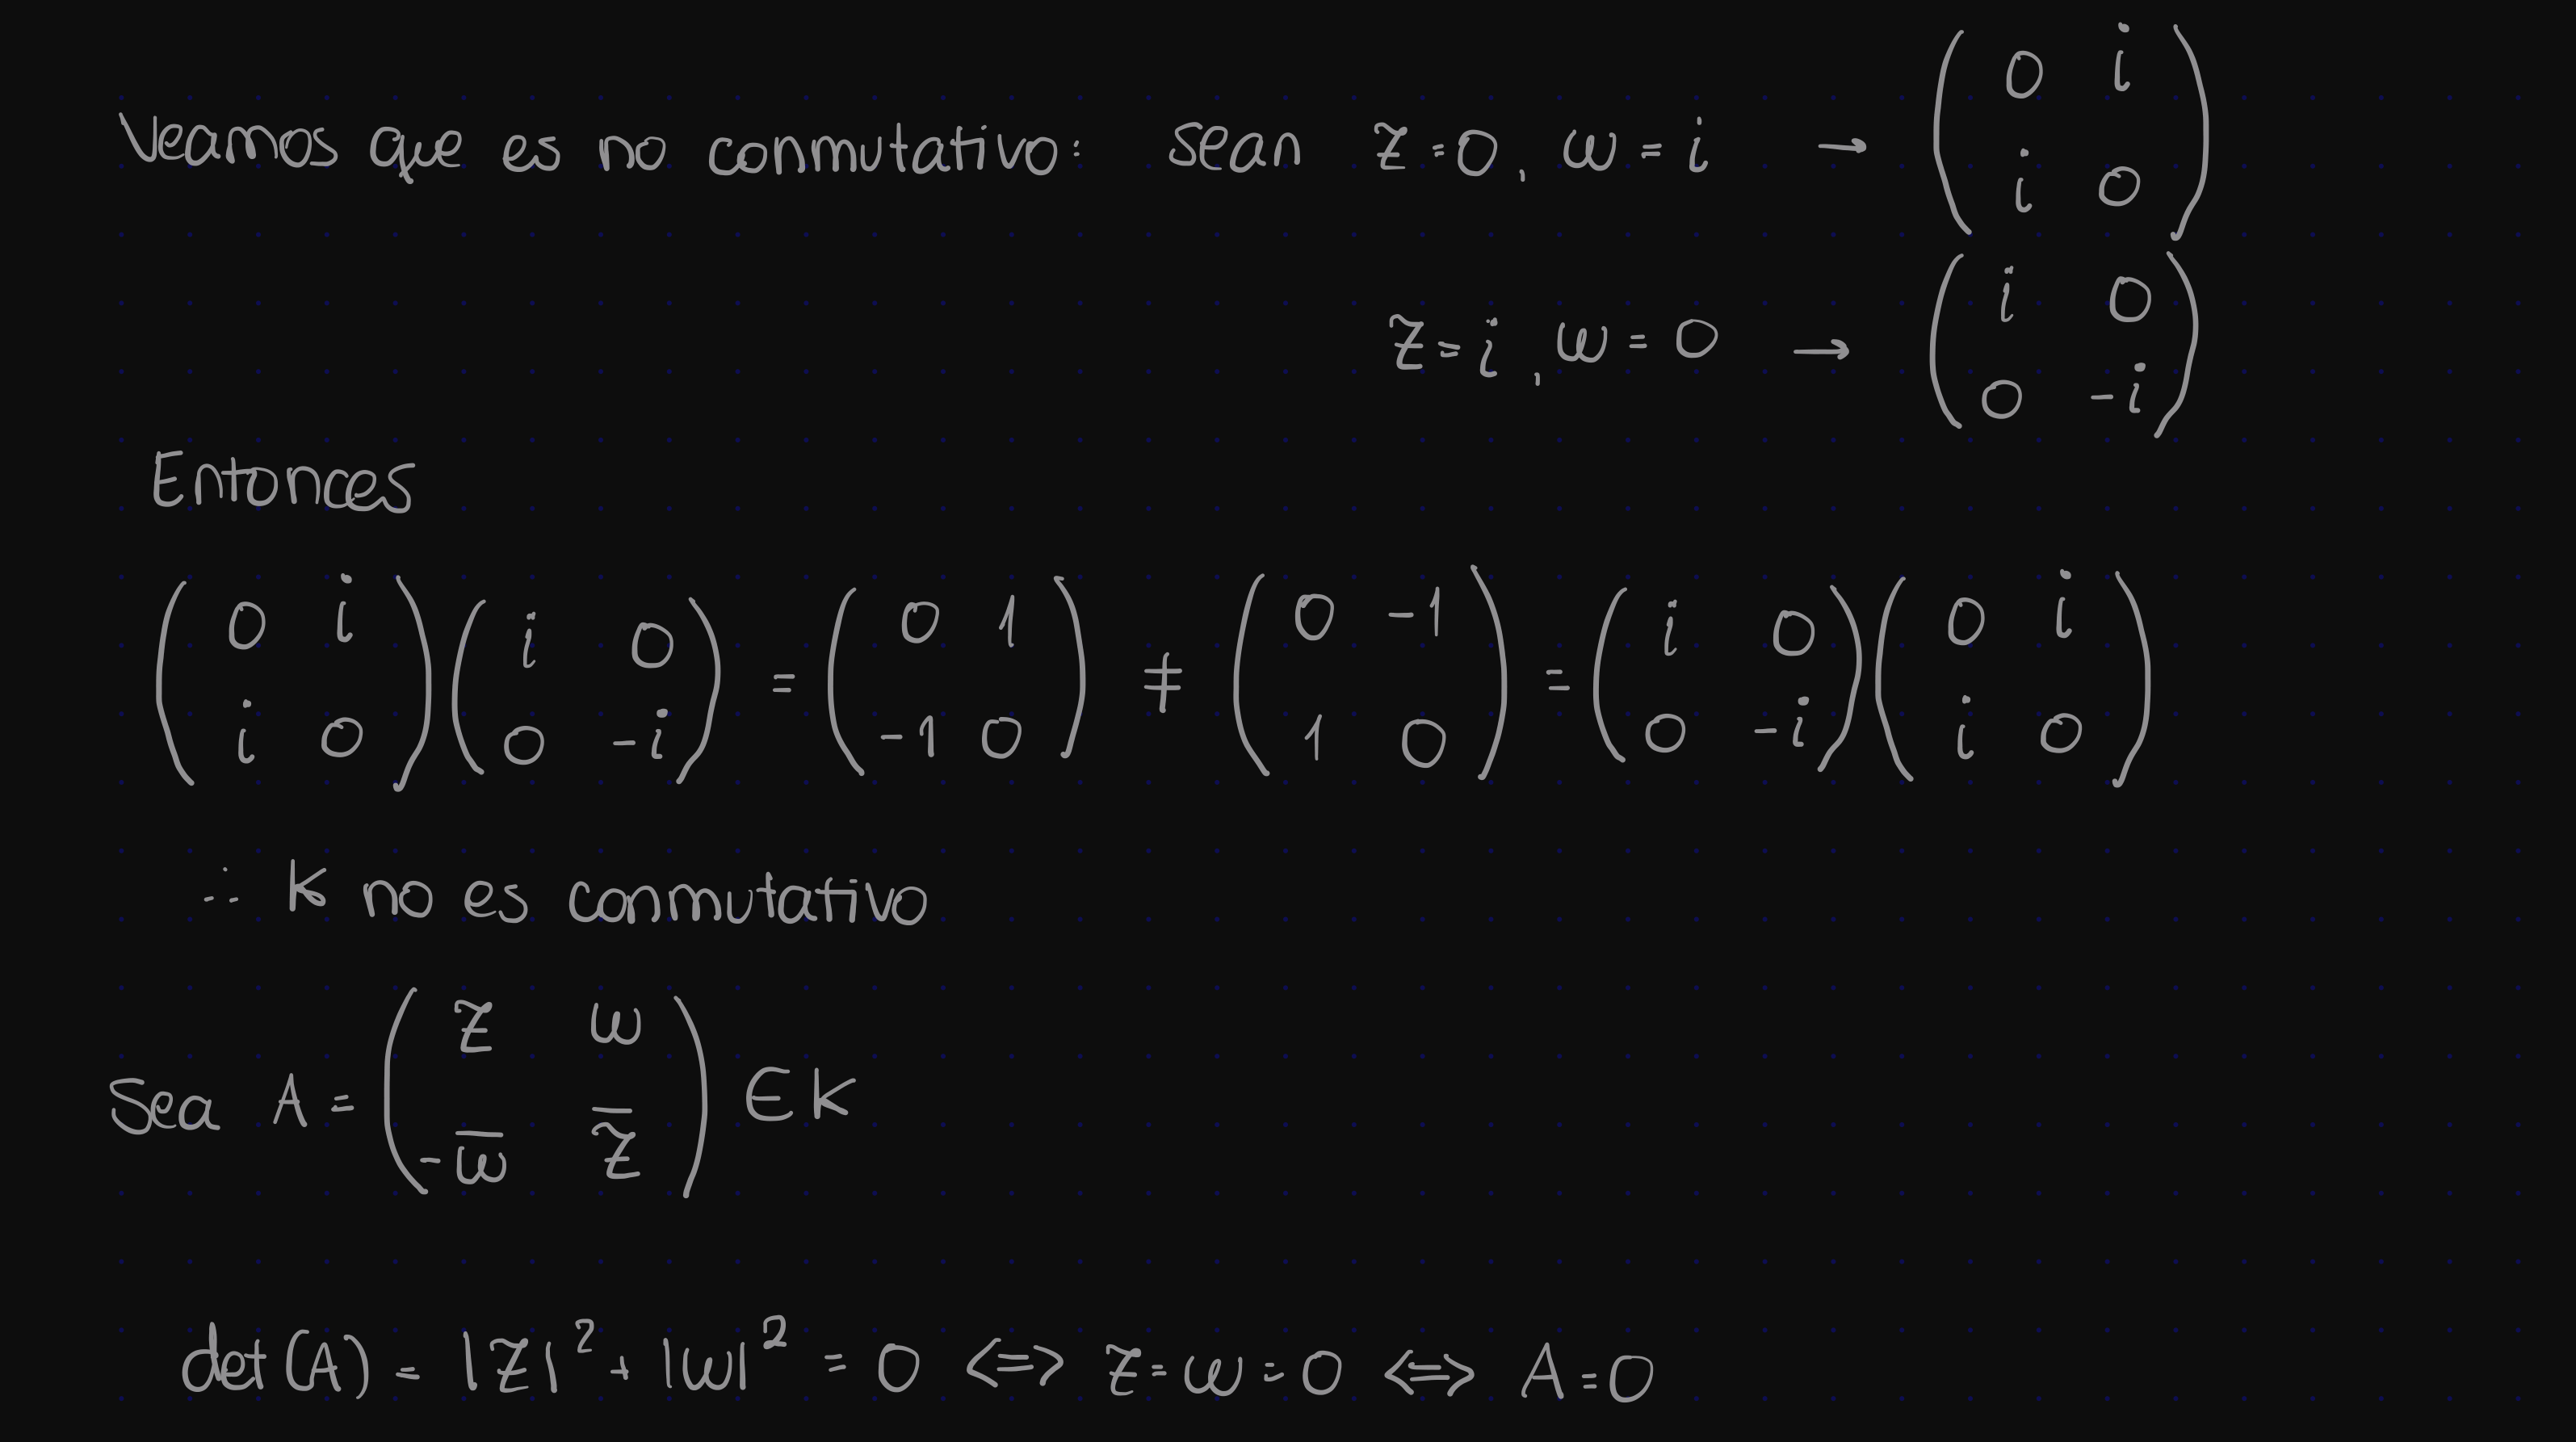 Veamos que es no conmutativo: sean z=0, ω=i → ( 0 i ; i 0 )
z=i, ω=0 → ( i 0 ; 0 -i )
Entonces
( 0 i ; i 0 ) ( i 0 ; 0 -i ) = ( 0 1 ; -1 0 ) ≠ ( 0 -1 ; 1 0 ) = ( i 0 ; 0 -i ) ( 0 i ; i 0 )
∴ K no es conmutativo
Sea A = ( z ω ; -ω̅ z̅ ) ∈ K
det(A) = |z|² + |ω|² = 0 <=> z=ω=0 <=> A=0